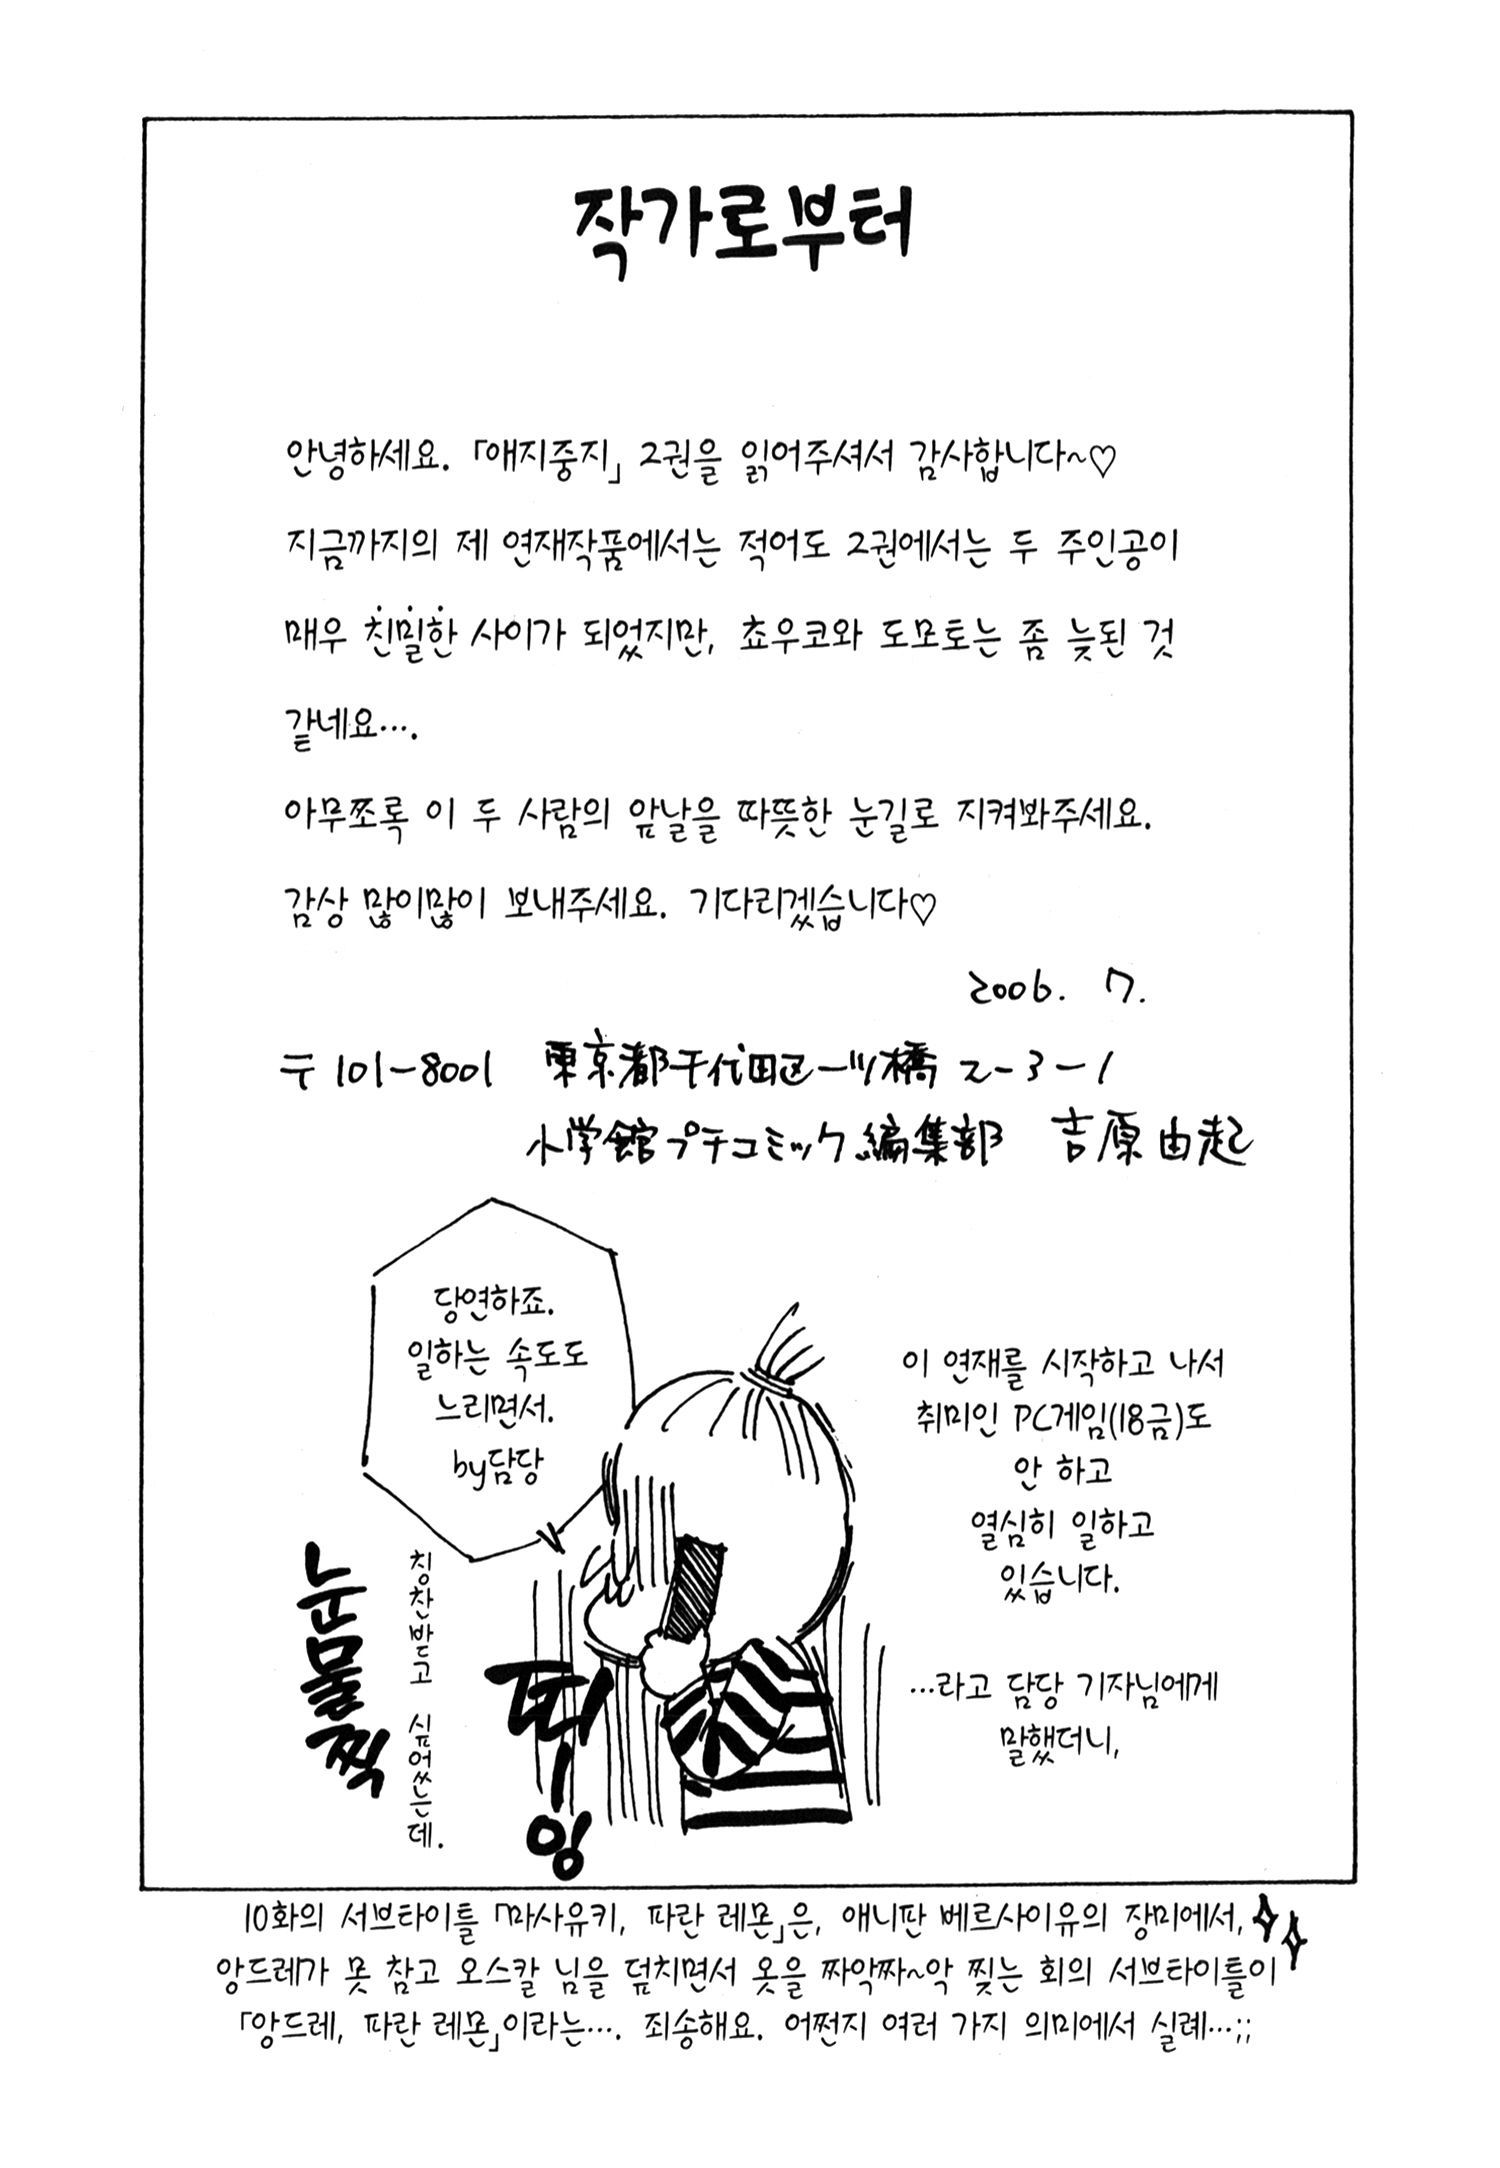 작가로부터
안녕하세요. 「애지중지」 2권을 읽어주셔서 감사합니다~♡
지금까지의 제 연재작품에서는 적어도 2권에서는 두 주인공이
매우 친밀한 사이가 되었지만, 쵸우코와 도모토는 좀 늦된 것
같네요….
아무쪼록 이 두 사람의 앞날을 따뜻한 눈길로 지켜봐주세요.
감상 많이많이 보내주세요. 기다리겠습니다♡
2006. 7.
〒101-8001 東京都千代田区一ツ橋2-3-1
小学館プチコミック編集部 吉原由起
당연하죠.
일하는 속도도
느리면서.
by담당
이 연재를 시작하고 나서
취미인 PC게임(18금)도
안 하고
열심히 일하고
있습니다.
…라고 담당 기자님에게
말했더니,
티잉
칭찬받고 싶었는데.
눈물찍
10화의 서브타이틀 「마사유키, 파란 레몬」은, 애니판 베르사이유의 장미에서,
앙드레가 못 참고 오스칼 님을 덮치면서 옷을 짜악짜~악 찢는 회의 서브타이틀이
「앙드레, 파란 레몬」이라는…. 죄송해요. 어쩐지 여러 가지 의미에서 실례…;;